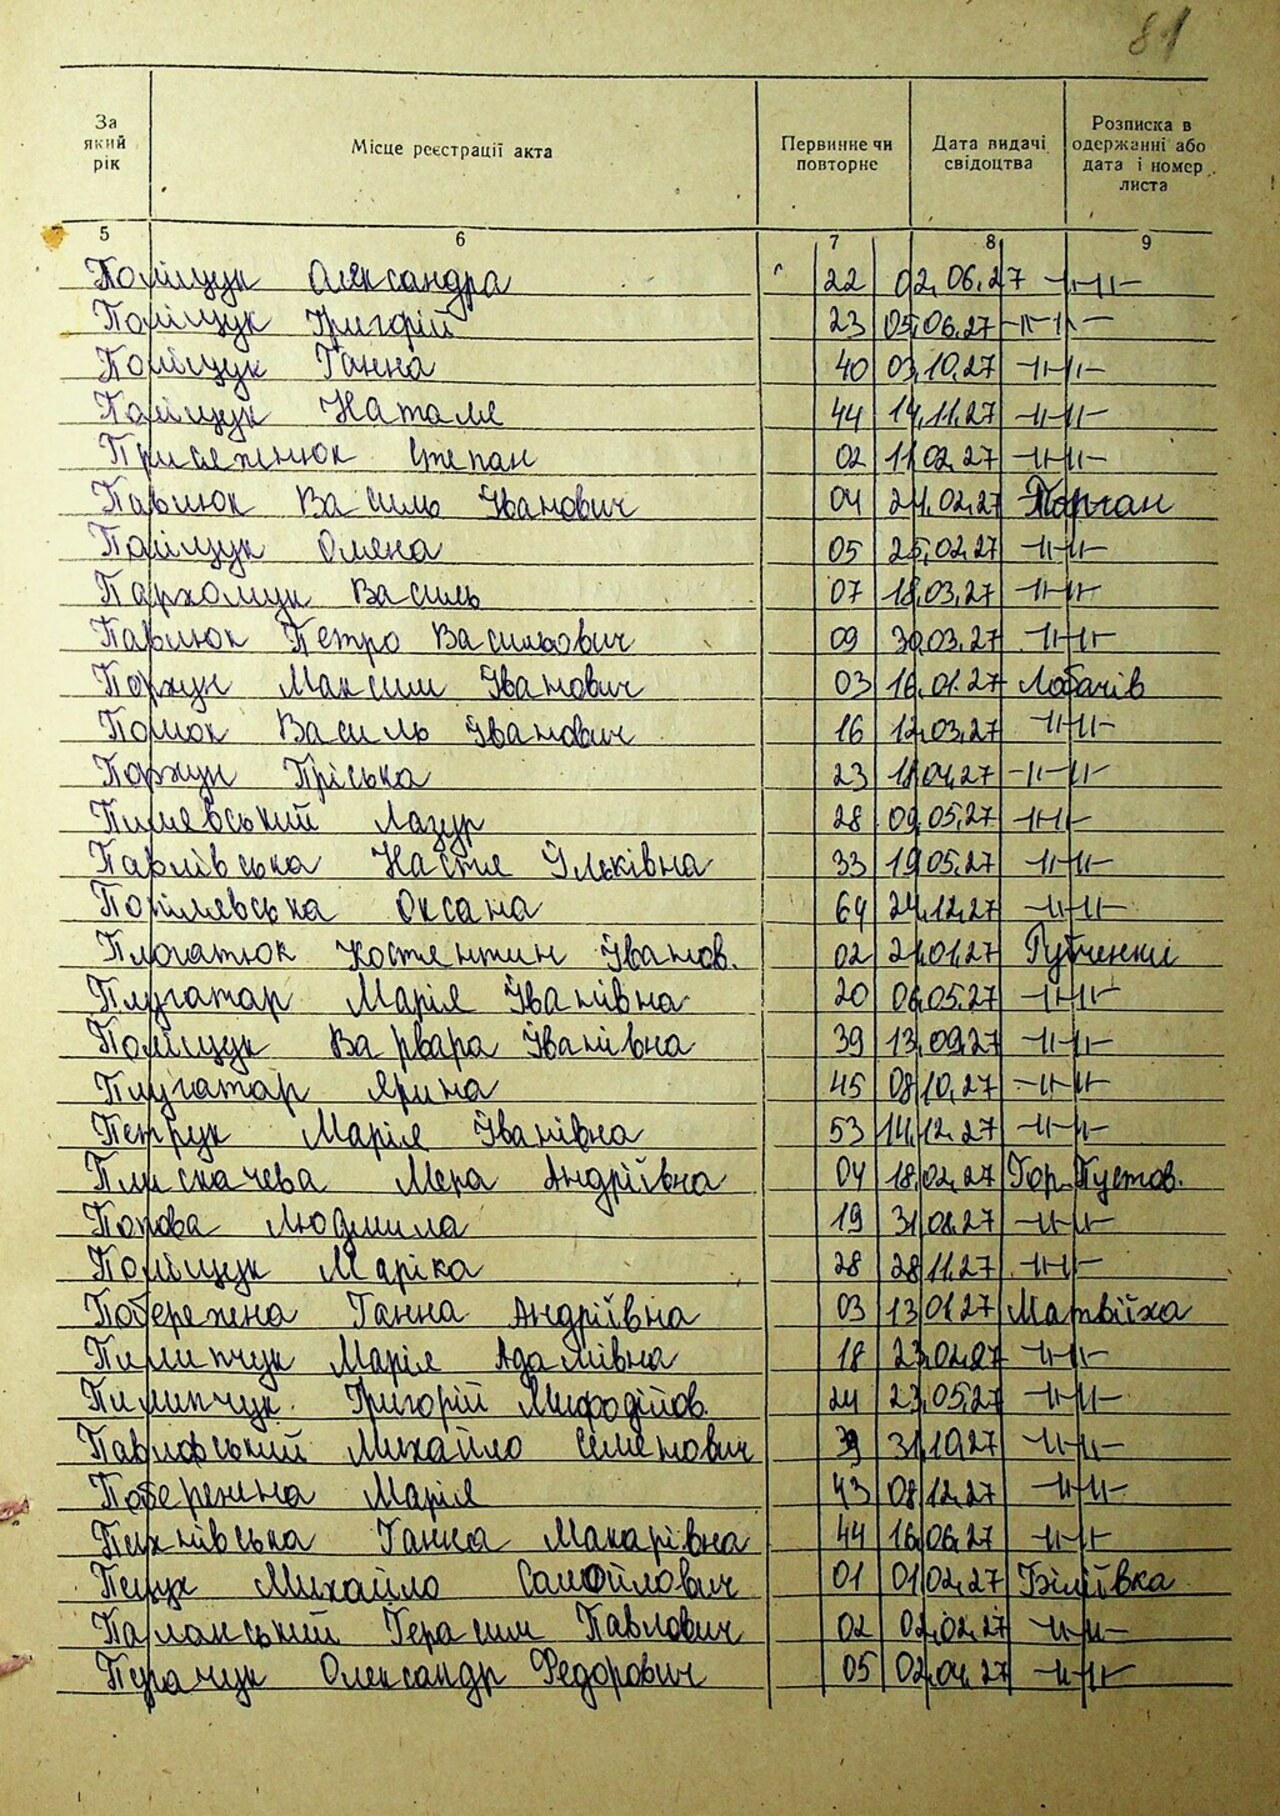 81
За який рік Місце реєстрації акта Первинне чи повторне Дата видачі свідоцтва Розписка в одержанні або дата і номер листа
5 6 7 8 9
Поліщук Олександра 22 02.06.27 -11-11-
Поліщук Григорій 23 05.06.27 -11-11-
Поліщук Ганна 40 03.10.27 -11-11-
Поліщук Наталя 44 14.11.27 -11-11-
Присяженюк Степан 02 11.02.27 -11-11-
Павлюк Василь Іванович 04 24.02.27
Поліщук Олена 05 25.02.27 -11-11-
Пархомук Василь 07 18.03.27 -11-11-
Павлюк Петро Васильович 09 30.03.27 -11-11-
Поржун Максим Іванович 03 16.01.27 Лобачів
Василь Іванович 16 12.03.27 -11-11-
Поржун Пріська 23 18.04.27 -11-11-
Лазур 28 09.05.27 -11-11-
Павлівська Настя Ільківна 33 19.05.27 -11-11-
Оксана 64 24.12.27 -11-11-
Костянтин Іванов. 02 21.01.27 Рубченки
Плугатар Марія Іванівна 20 06.05.27 -11-11-
Поліщук Варвара Іванівна 39 13.09.27 -11-11-
Плугатар Ярина 45 08.10.27 -11-11-
Петрук Марія Іванівна 53 14.12.27 -11-11-
Плискачева Андріївна 04 18.02.27 Гор-Пустов.
Попова Людмила 19 -11-11-
Поліщук Маріка 28 28.11.27 -11-11-
Побережена Ганна Андріївна 03 13.01.27 Матвіїха
Пилипчук Марія Адамівна 18 -11-11-
Пилипчук Григорій Мифодійов. 24 23.05.27 -11-11-
Михайло Семенович 39 31.10.27 -11-11-
Марія 43 08.12.27 -11-11-
Пихнівська Ганна Макарівна 44 16.06.27 -11-11-
Михайло Самойлович 01 01.02.27 Біліївка
Паланський Герасим Павлович 02 02.02.27 -11-11-
Олександр Федорович 05 02.04.27 -11-11-